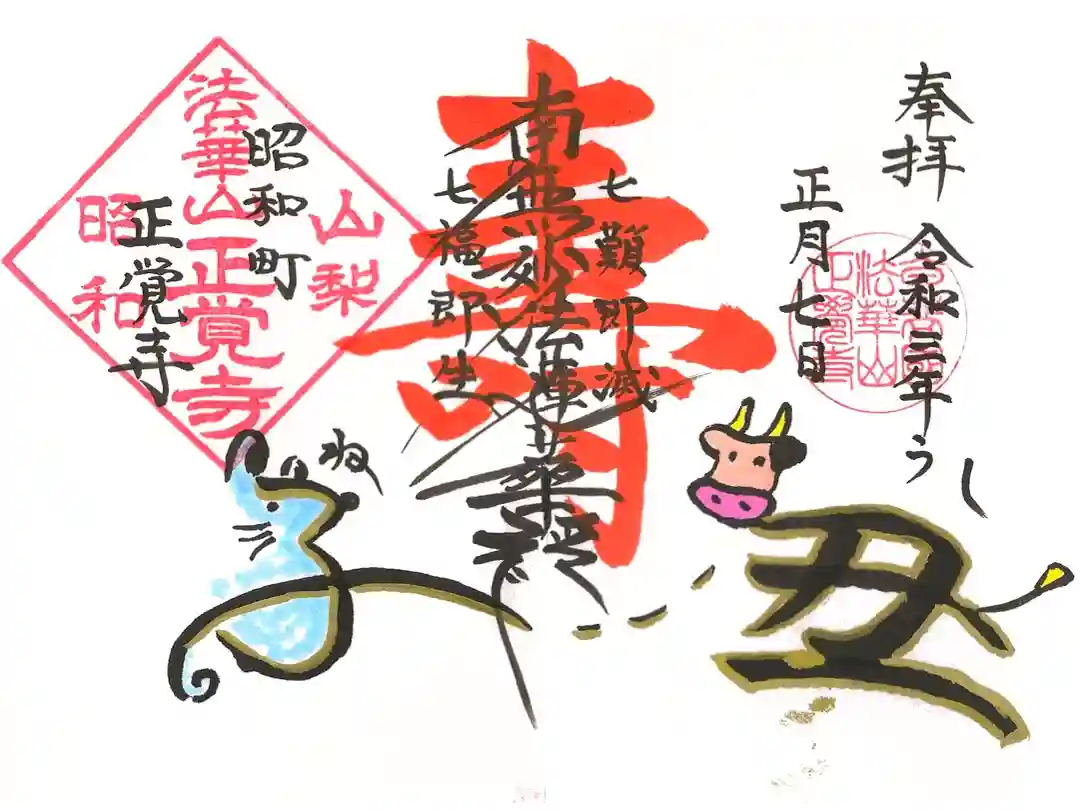 奉拝
令和三年
うし
正月七日
法華山
正覺寺
七難即滅
寿
南無妙法蓮華経
七福即生
山梨
昭和町
法華山正覚寺
昭和
正覚寺
ね
子
丑